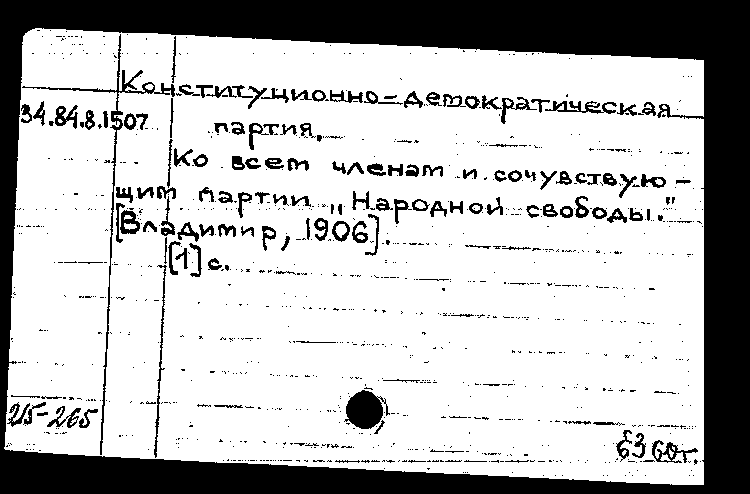 Конституционно-демократическая
34.84.8.1507 партия.
Ко всем членам и сочувствую-
щим партии „Народной свободы."
[Владимир, 1906].
[1] с.
215-265